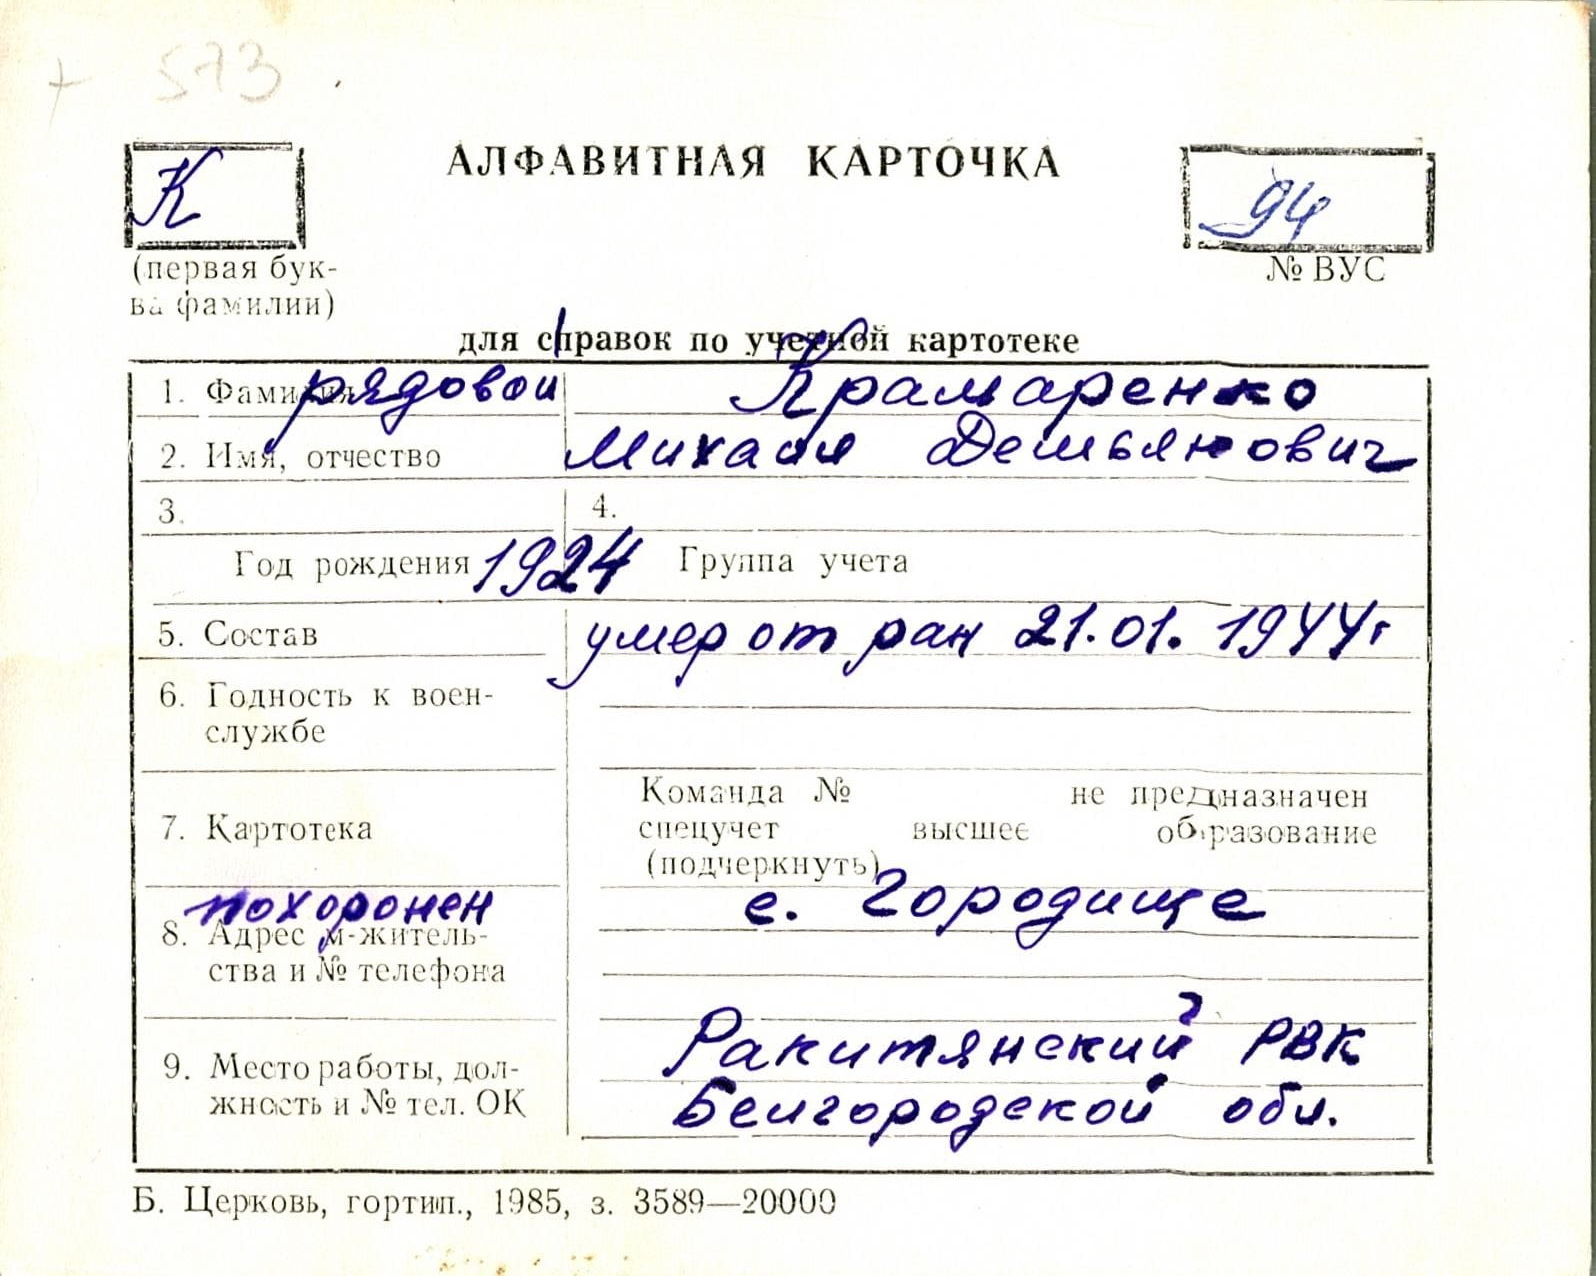 + 573
АЛФАВИТНАЯ КАРТОЧКА
К
94
(первая бук-
ва фамилии)
№ ВУС
для справок по учетной картотеке
1. Фамилия рядовой Крамаренко
2. Имя, отчество Михаил Демьянович
3. 4.
Год рождения 1924 Группа учета
5. Состав умер от ран 21.01.1944г
6. Годность к воен-
службе
Команда № не предназначен
7. Картотека спецучет высшее образование
(подчеркнуть)
похоронен с. Городище
8. Адрес м-житель-
ства и № телефона
Ракитянский РВК
9. Место работы, дол-
жность и № тел. ОК Белгородской обл.
Б. Церковь, гортип., 1985, з. 3589—20000